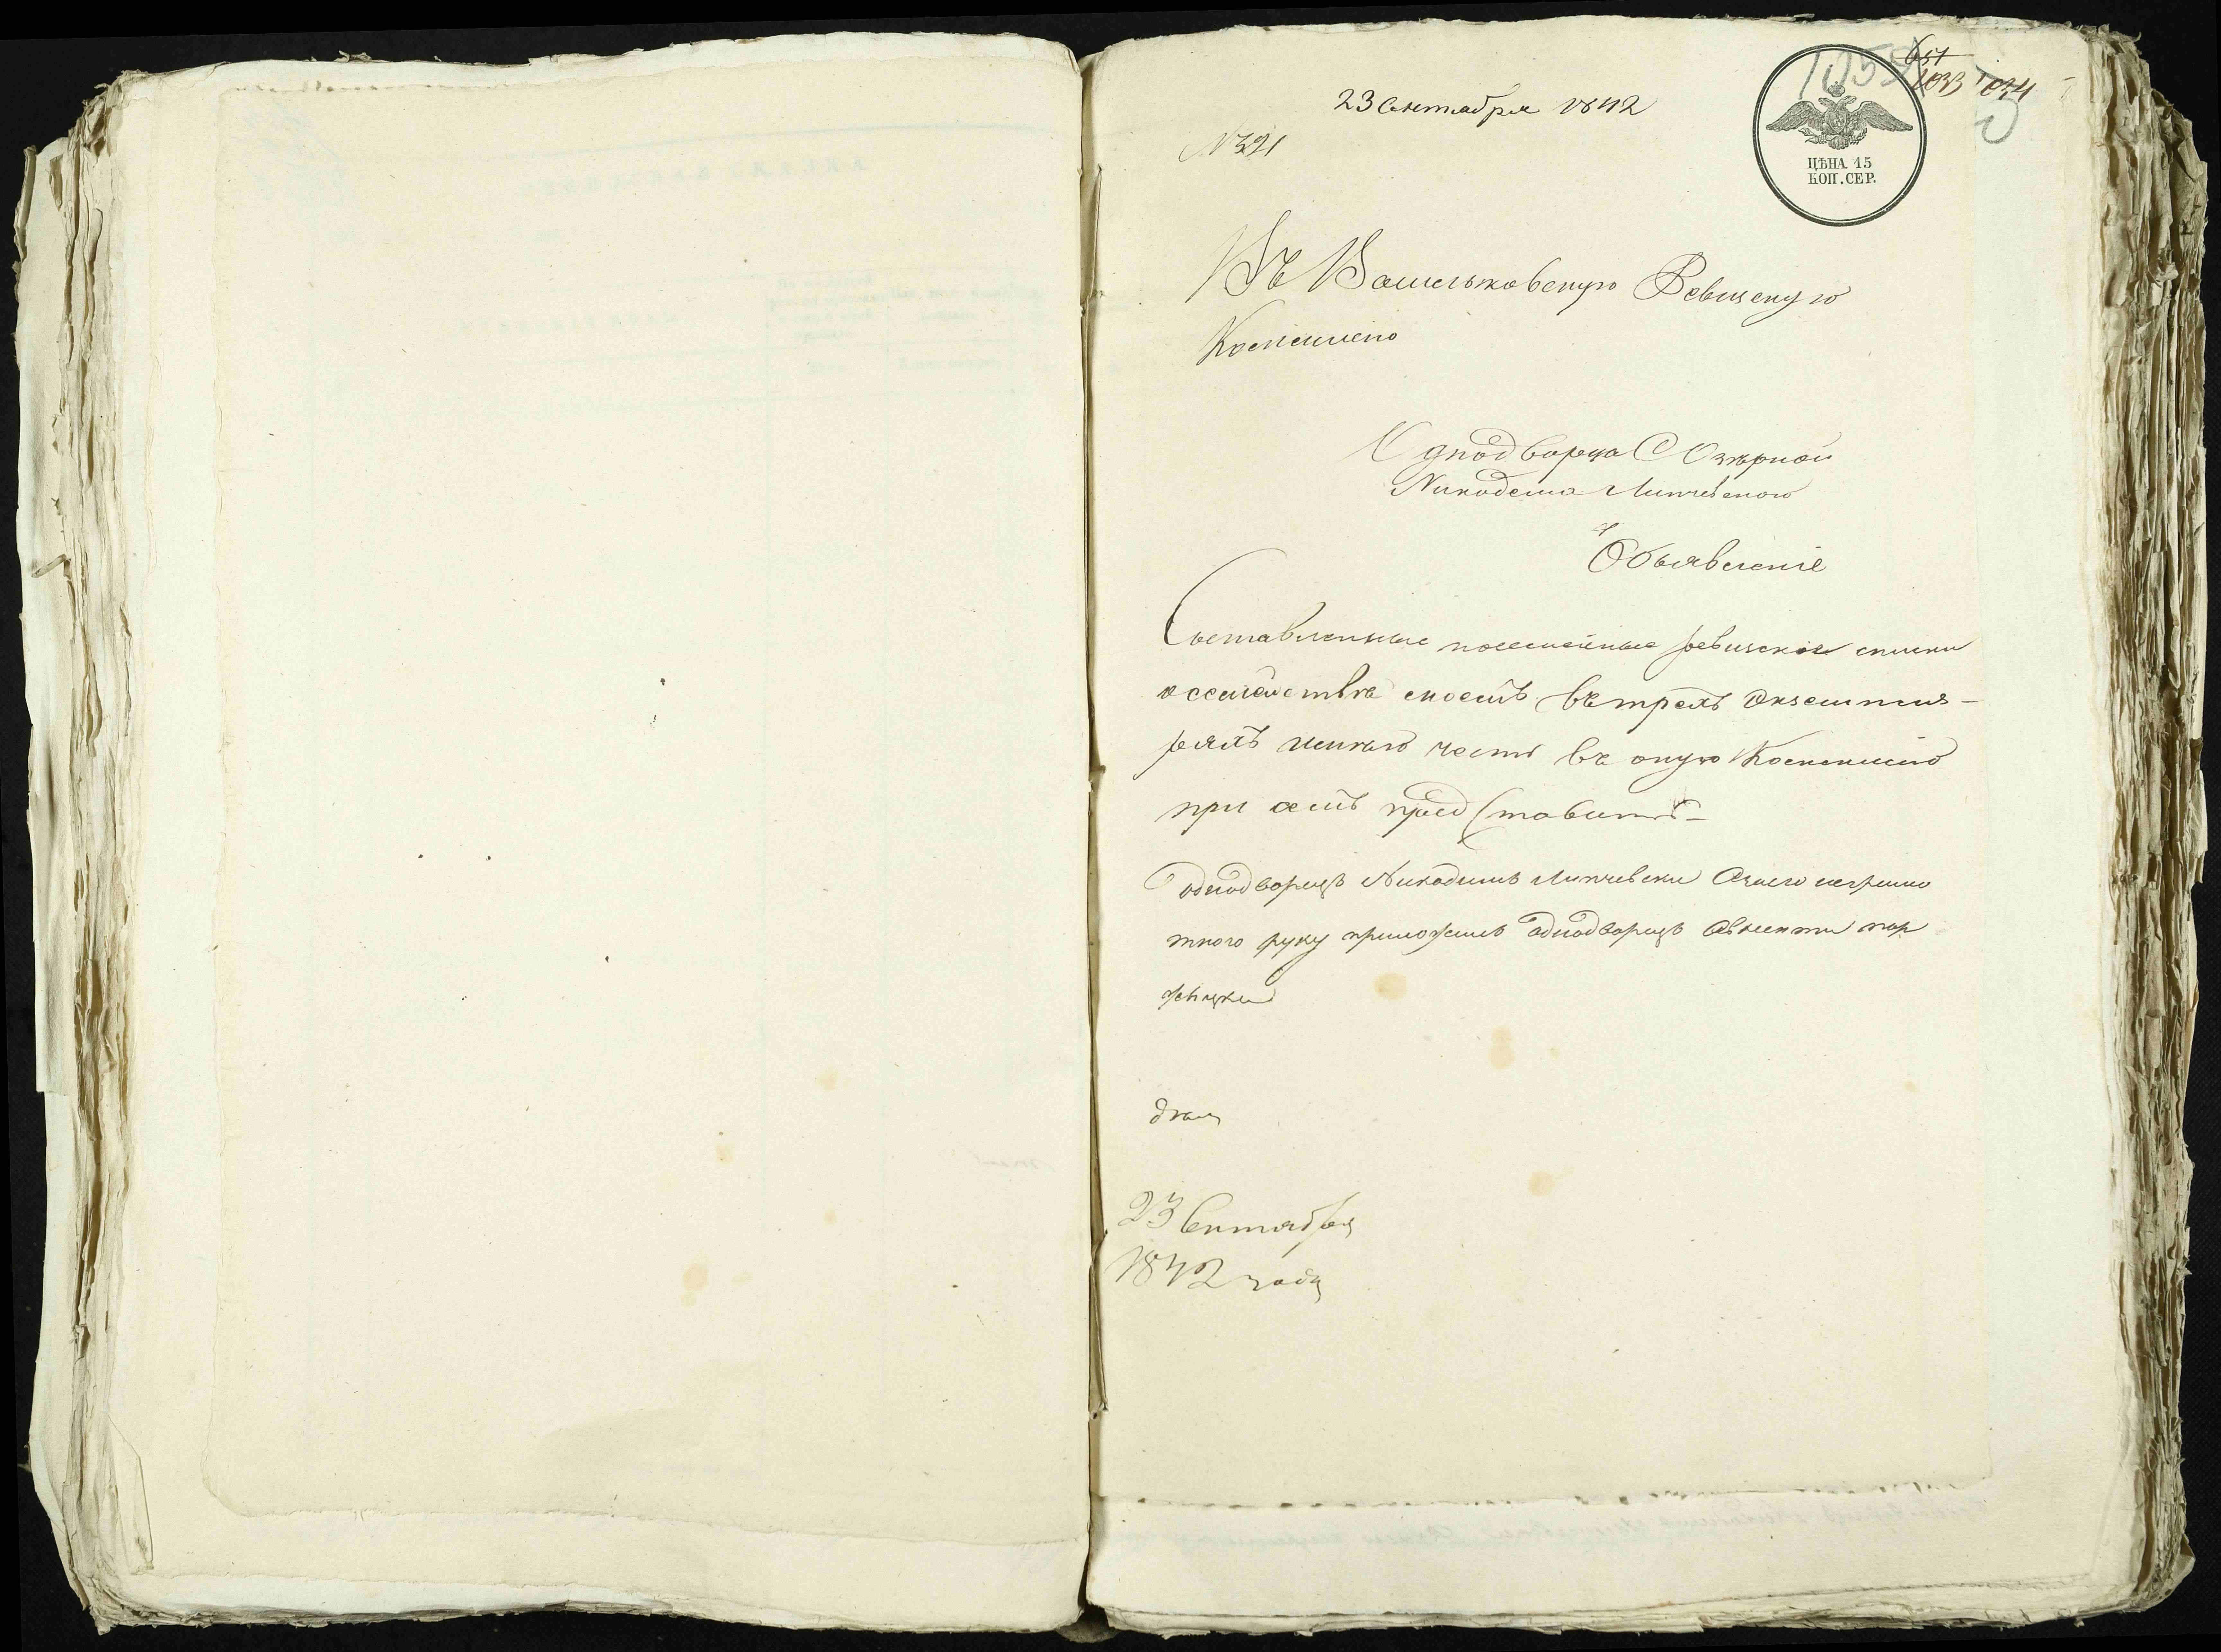 23 Сентября 1842
№ 321
651
1033 1034
ЦѢНА 15
КОП. СЕР.
Въ Васильковскую Ревизскую
Коммисію
Однодворца С Озѣрной
Никодема Липчевского
Объявленіе
Составленные посемейные ревизскіе списки
о семействѣ моемъ въ трехъ Экземпля-
рахъ имѣю честь въ оную Коммисію
при семъ представить
однодворецъ Никодимъ Липчевски Азнего неграмо
тного руку приложилъ однодворецъ
дня
23 Сентября
1842 года